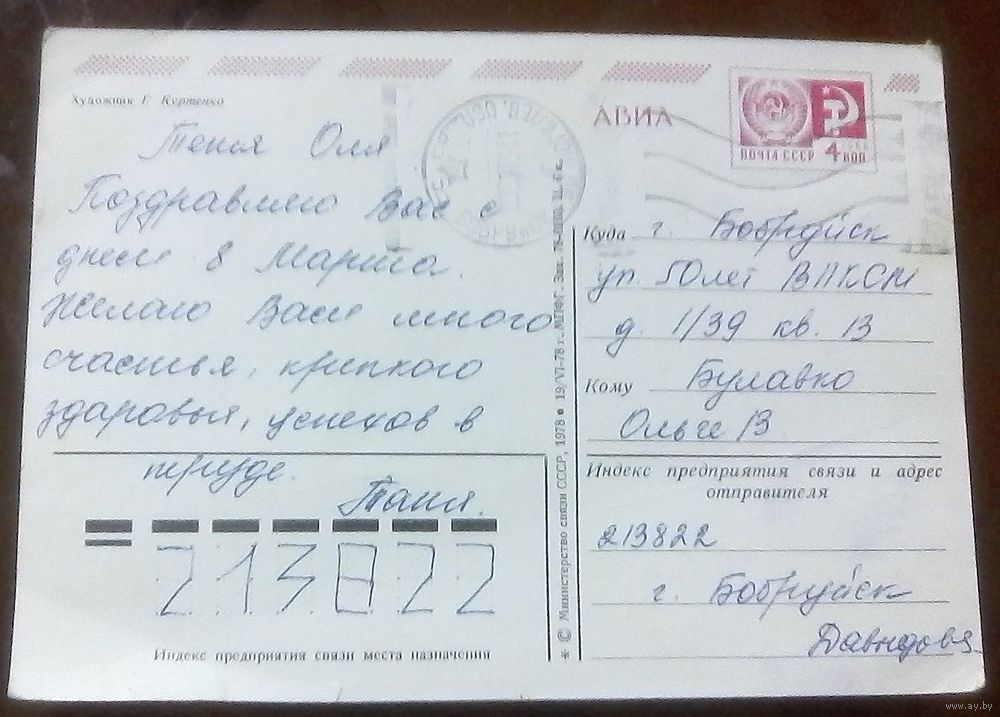 Художник Г. Куртенко
АВИА
ПОЧТА СССР 4 КОП
1966
Тетя Оля
Поздравляю Вас с
днем 8 Марта.
Желаю Вам много
счастья, крепкого
здоровья, успехов в
труде.
Таня.
213822
Индекс предприятия связи места назначения
* © Министерство связи СССР, 1978 • 19/VI-78 г. МПФГ. Зак. Ц. 6 к.
Куда г. Бобруйск
ул. 50 лет ВЛКСМ
д. 1/39 кв. 13
Кому Булавко
Ольге В
Индекс предприятия связи и адрес
отправителя
213822
г. Бобруйск
Давыдова
www.ay.by